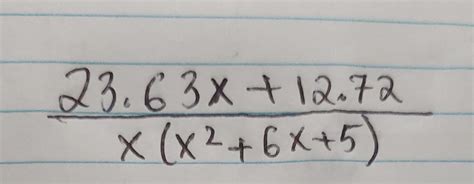 23.63x + 12.72
x (x² + 6x + 5)